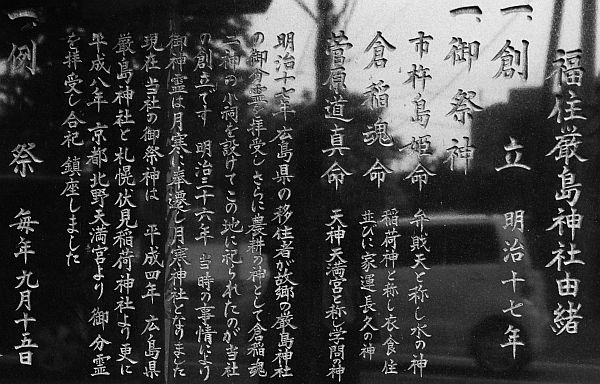 福住厳島神社由緒
一、創立 明治十七年
一、御祭神
市杵島姫命 弁財天と称し水の神
倉稲魂命 稲荷神と称し衣食住
並びに家運長久の神
菅原道真命 天神天満宮と称し学問の神
明治十七年 広島県の移住者が故郷の厳島神社
の御分霊を拝受し さらに農耕の神として倉稲魂
の神の小祠を設けてこの地に祀られたのが当社
の創立です 明治三十六年 当時の事情により
御神霊は月寒に奉遷し月寒神社となりました
現在 当社の御祭神は 平成四年 広島県
厳島神社と札幌伏見稲荷神社より更に
平成八年 京都北野天満宮より御分霊
を拝受し合祀 鎮座しました
一、例祭 毎年九月十五日